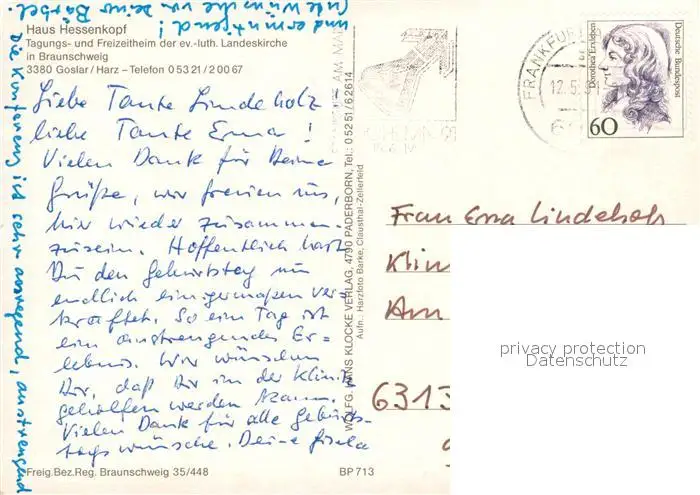 Haus Hessenkopf
Tagungs- und Freizeitheim der ev.-luth. Landeskirche
in Braunschweig
3380 Goslar / Harz – Telefon 0 53 21 / 2 00 67
Liebe Tante Lindeholz
liebe Tante Erna !
Vielen Dank für Deine
Grüße, wir freuen uns,
hier wieder zusammen-
zusein. Hoffentlich hast
Du den Geburtstag nun
endlich einigermaßen ver-
kraftet. So ein Tag ist
ein anstrengendes Er=
lebnis. Wir wünschen
Dir, daß Dir in der Klinik
geholfen werden kann.
Vielen Dank für alle Geburts-
tagswünsche. Deine Gisela
Die Konferenz ist sehr anregend, anstrengend
und ermutigend!
Gute Wünsche von Deiner Bärbel.
Freig.Bez.Reg. Braunschweig 35/448
BP 713
WOLFG. HANS KLOCKE VERLAG, 4790 PADERBORN, Tel.: 0 52 51 / 6 26 14
Aufn.: Herzfoto Barke, Clausthal-Zellerfeld
FRANKFUR
12.5.
Dorothea Erxleben
Deutsche Bundespost
60
Frau Erna Lindeholz
Klin
Am
6313
privacy protection
Datenschutz